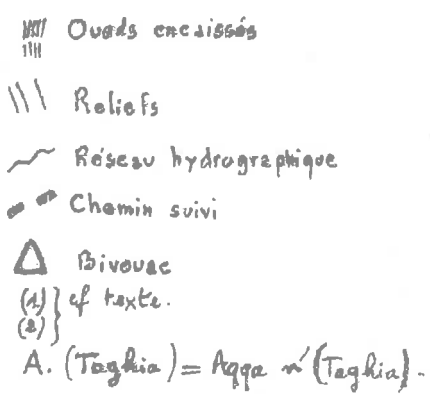 Oueds encaissés
Reliefs
Réseau hydrographique
Chemin suivi
Bivouac
(1)
(2) } cf texte.
A. (Taghia) = Aqqa n'(Taghia).